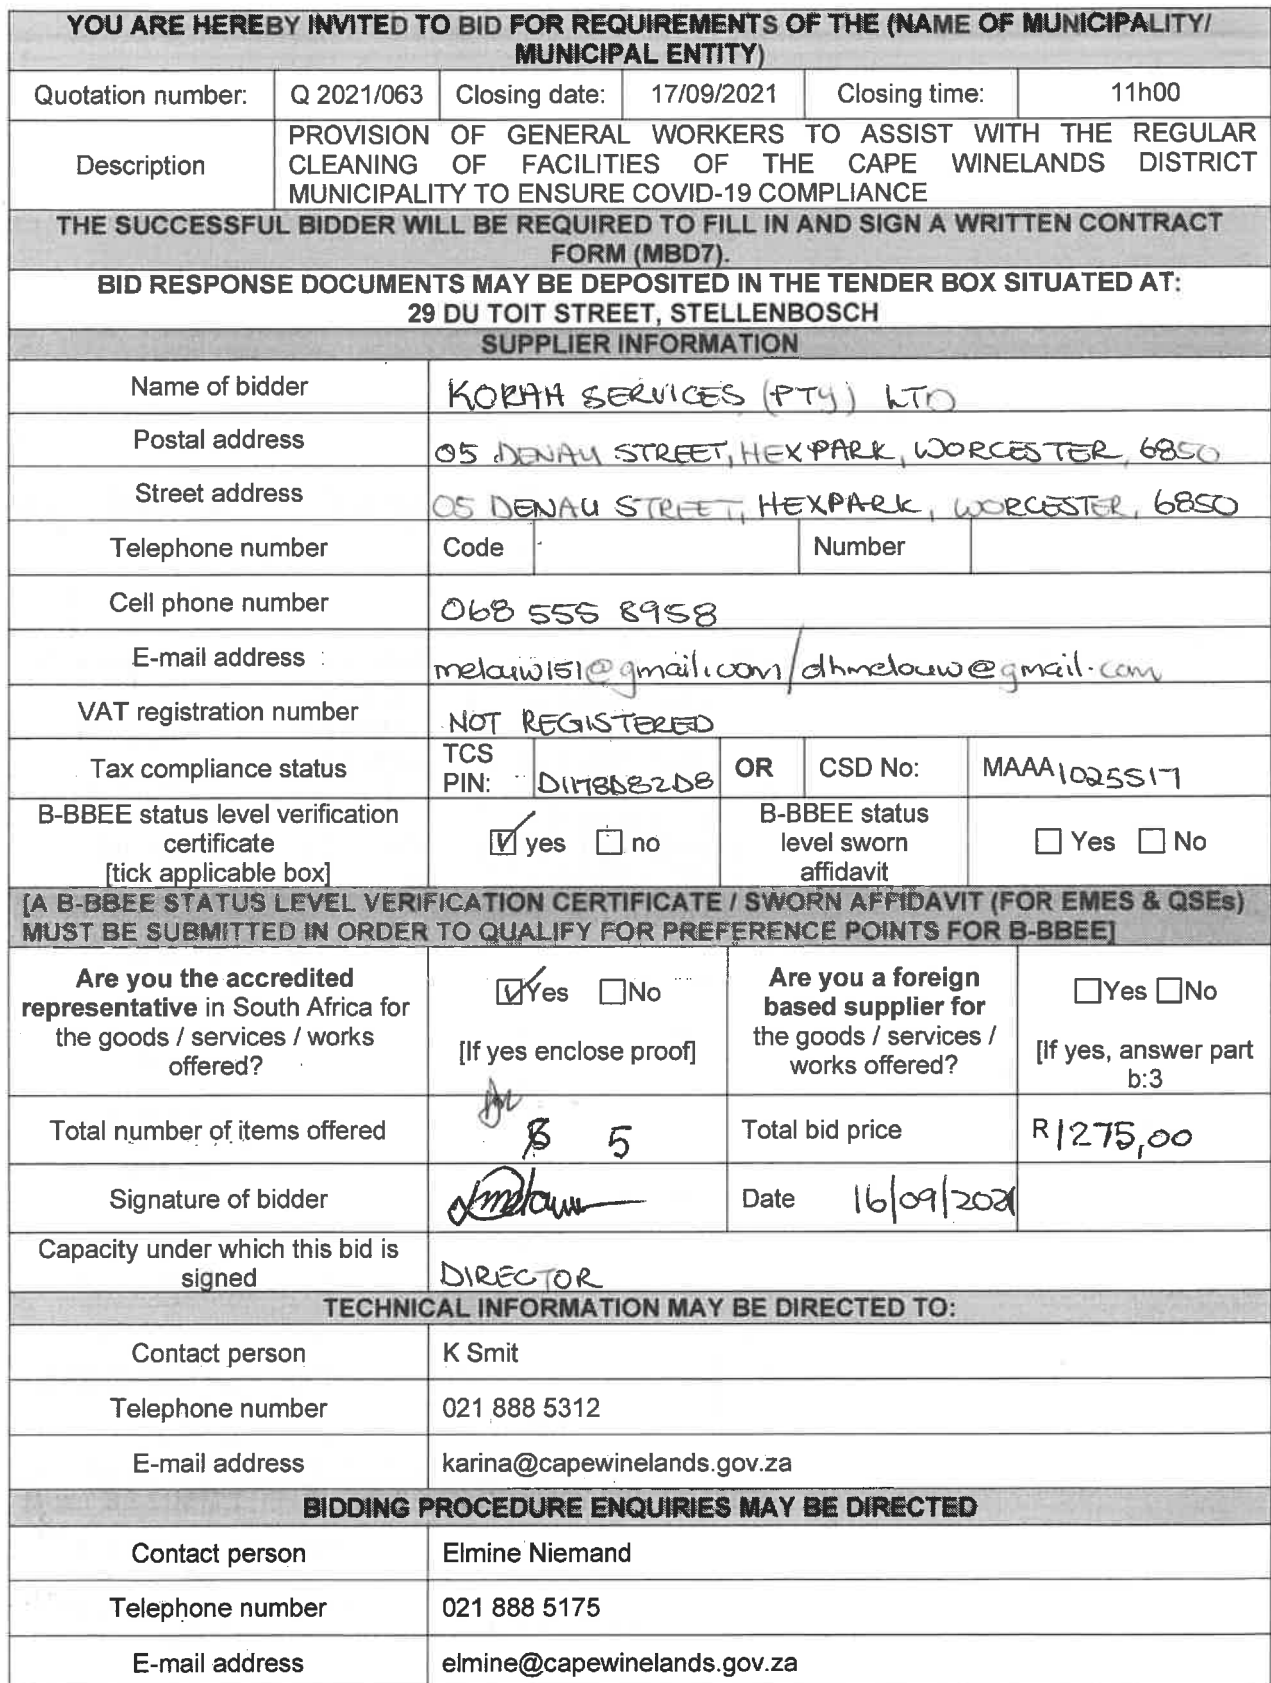 YOU ARE HEREBY INVITED TO BID FOR REQUIREMENTS OF THE (NAME OF MUNICIPALITY/
MUNICIPAL ENTITY)
Quotation number: Q 2021/063 Closing date: 17/09/2021 Closing time: 11h00
Description
PROVISION OF GENERAL WORKERS TO ASSIST WITH THE REGULAR
CLEANING OF FACILITIES OF THE CAPE WINELANDS DISTRICT
MUNICIPALITY TO ENSURE COVID-19 COMPLIANCE
THE SUCCESSFUL BIDDER WILL BE REQUIRED TO FILL IN AND SIGN A WRITTEN CONTRACT
FORM (MBD7).
BID RESPONSE DOCUMENTS MAY BE DEPOSITED IN THE TENDER BOX SITUATED AT:
29 DU TOIT STREET, STELLENBOSCH
SUPPLIER INFORMATION
Name of bidder KORAH SERVICES (PTY) LTD
Postal address 05 DENAU STREET, HEXPARK, WORCESTER, 6850
Street address 05 DENAU STREET, HEXPARK, WORCESTER, 6850
Telephone number Code Number
Cell phone number 068 555 8958
E-mail address : melouw151@gmail.com/dhmelouw@gmail.com
VAT registration number NOT REGISTERED
Tax compliance status TCS PIN: D1178D82D8 OR CSD No: MAAA1025517
B-BBEE status level verification
certificate
[tick applicable box]
yes no
B-BBEE status
level sworn
affidavit
Yes No
[A B-BBEE STATUS LEVEL VERIFICATION CERTIFICATE / SWORN AFFIDAVIT (FOR EMES & QSEs)
MUST BE SUBMITTED IN ORDER TO QUALIFY FOR PREFERENCE POINTS FOR B-BBEE]
Are you the accredited
representative in South Africa for
the goods / services / works
offered?
Yes No
[If yes enclose proof]
Are you a foreign
based supplier for
the goods / services /
works offered?
Yes No
[If yes, answer part
b:3
Total number of items offered 5 Total bid price R1275,00
Signature of bidder Date 16/09/2021
Capacity under which this bid is
signed
DIRECTOR
TECHNICAL INFORMATION MAY BE DIRECTED TO:
Contact person K Smit
Telephone number 021 888 5312
E-mail address karina@capewinelands.gov.za
BIDDING PROCEDURE ENQUIRIES MAY BE DIRECTED
Contact person Elmine Niemand
Telephone number 021 888 5175
E-mail address elmine@capewinelands.gov.za